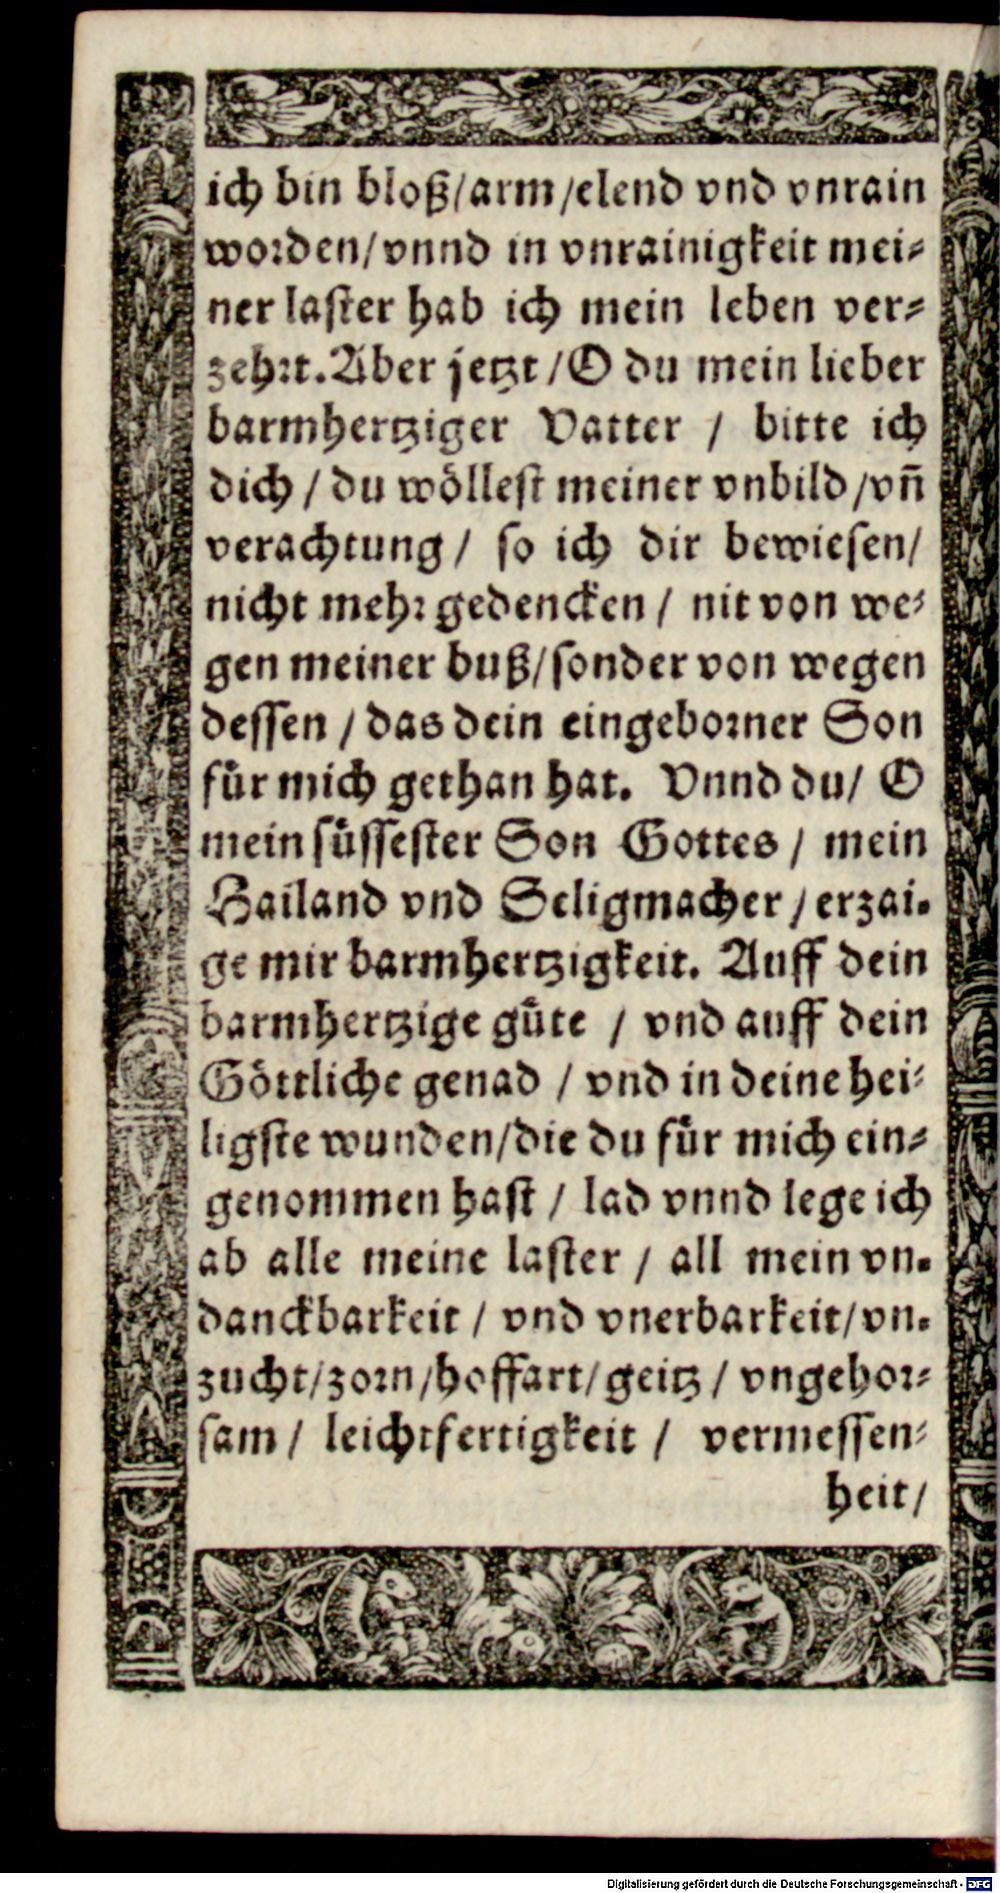 ich bin bloß/arm/elend vnd vnrain
worden/vnnd in vnrainigkeit mei⸗
ner laſter hab ich mein leben ver⸗
zehrt. Aber jetzt/O du mein lieber
barmhertziger Vatter / bitte ich
dich / du wöllest meiner vnbild/vñ
verachtung / ſo ich dir bewieſen/
nicht mehr gedencken / nit von we⸗
gen meiner buß/ſonder von wegen
deſſen / das dein eingeborner Son
für mich gethan hat. Vnnd du/ O
mein ſüſſeſter Son Gottes / mein
Hailand vnd Seligmacher / erzai⸗
ge mir barmhertzigkeit. Auff dein
barmhertzige güte / vnd auff dein
Göttliche genad / vnd in deine hei⸗
ligſte wunden/die du für mich ein⸗
genommen haſt / lad vnnd lege ich
ab alle meine laſter / all mein vn⸗
danckbarkeit / vnd vnerbarkeit/vn⸗
zucht/zorn/hoffart/geitz / vngehor⸗
ſam / leichtfertigkeit / vermeſſen⸗
heit/
Digitalisierung gefördert durch die Deutsche Forschungsgemeinschaft - DFG